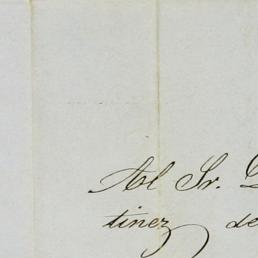 Al Sr.
tinez de